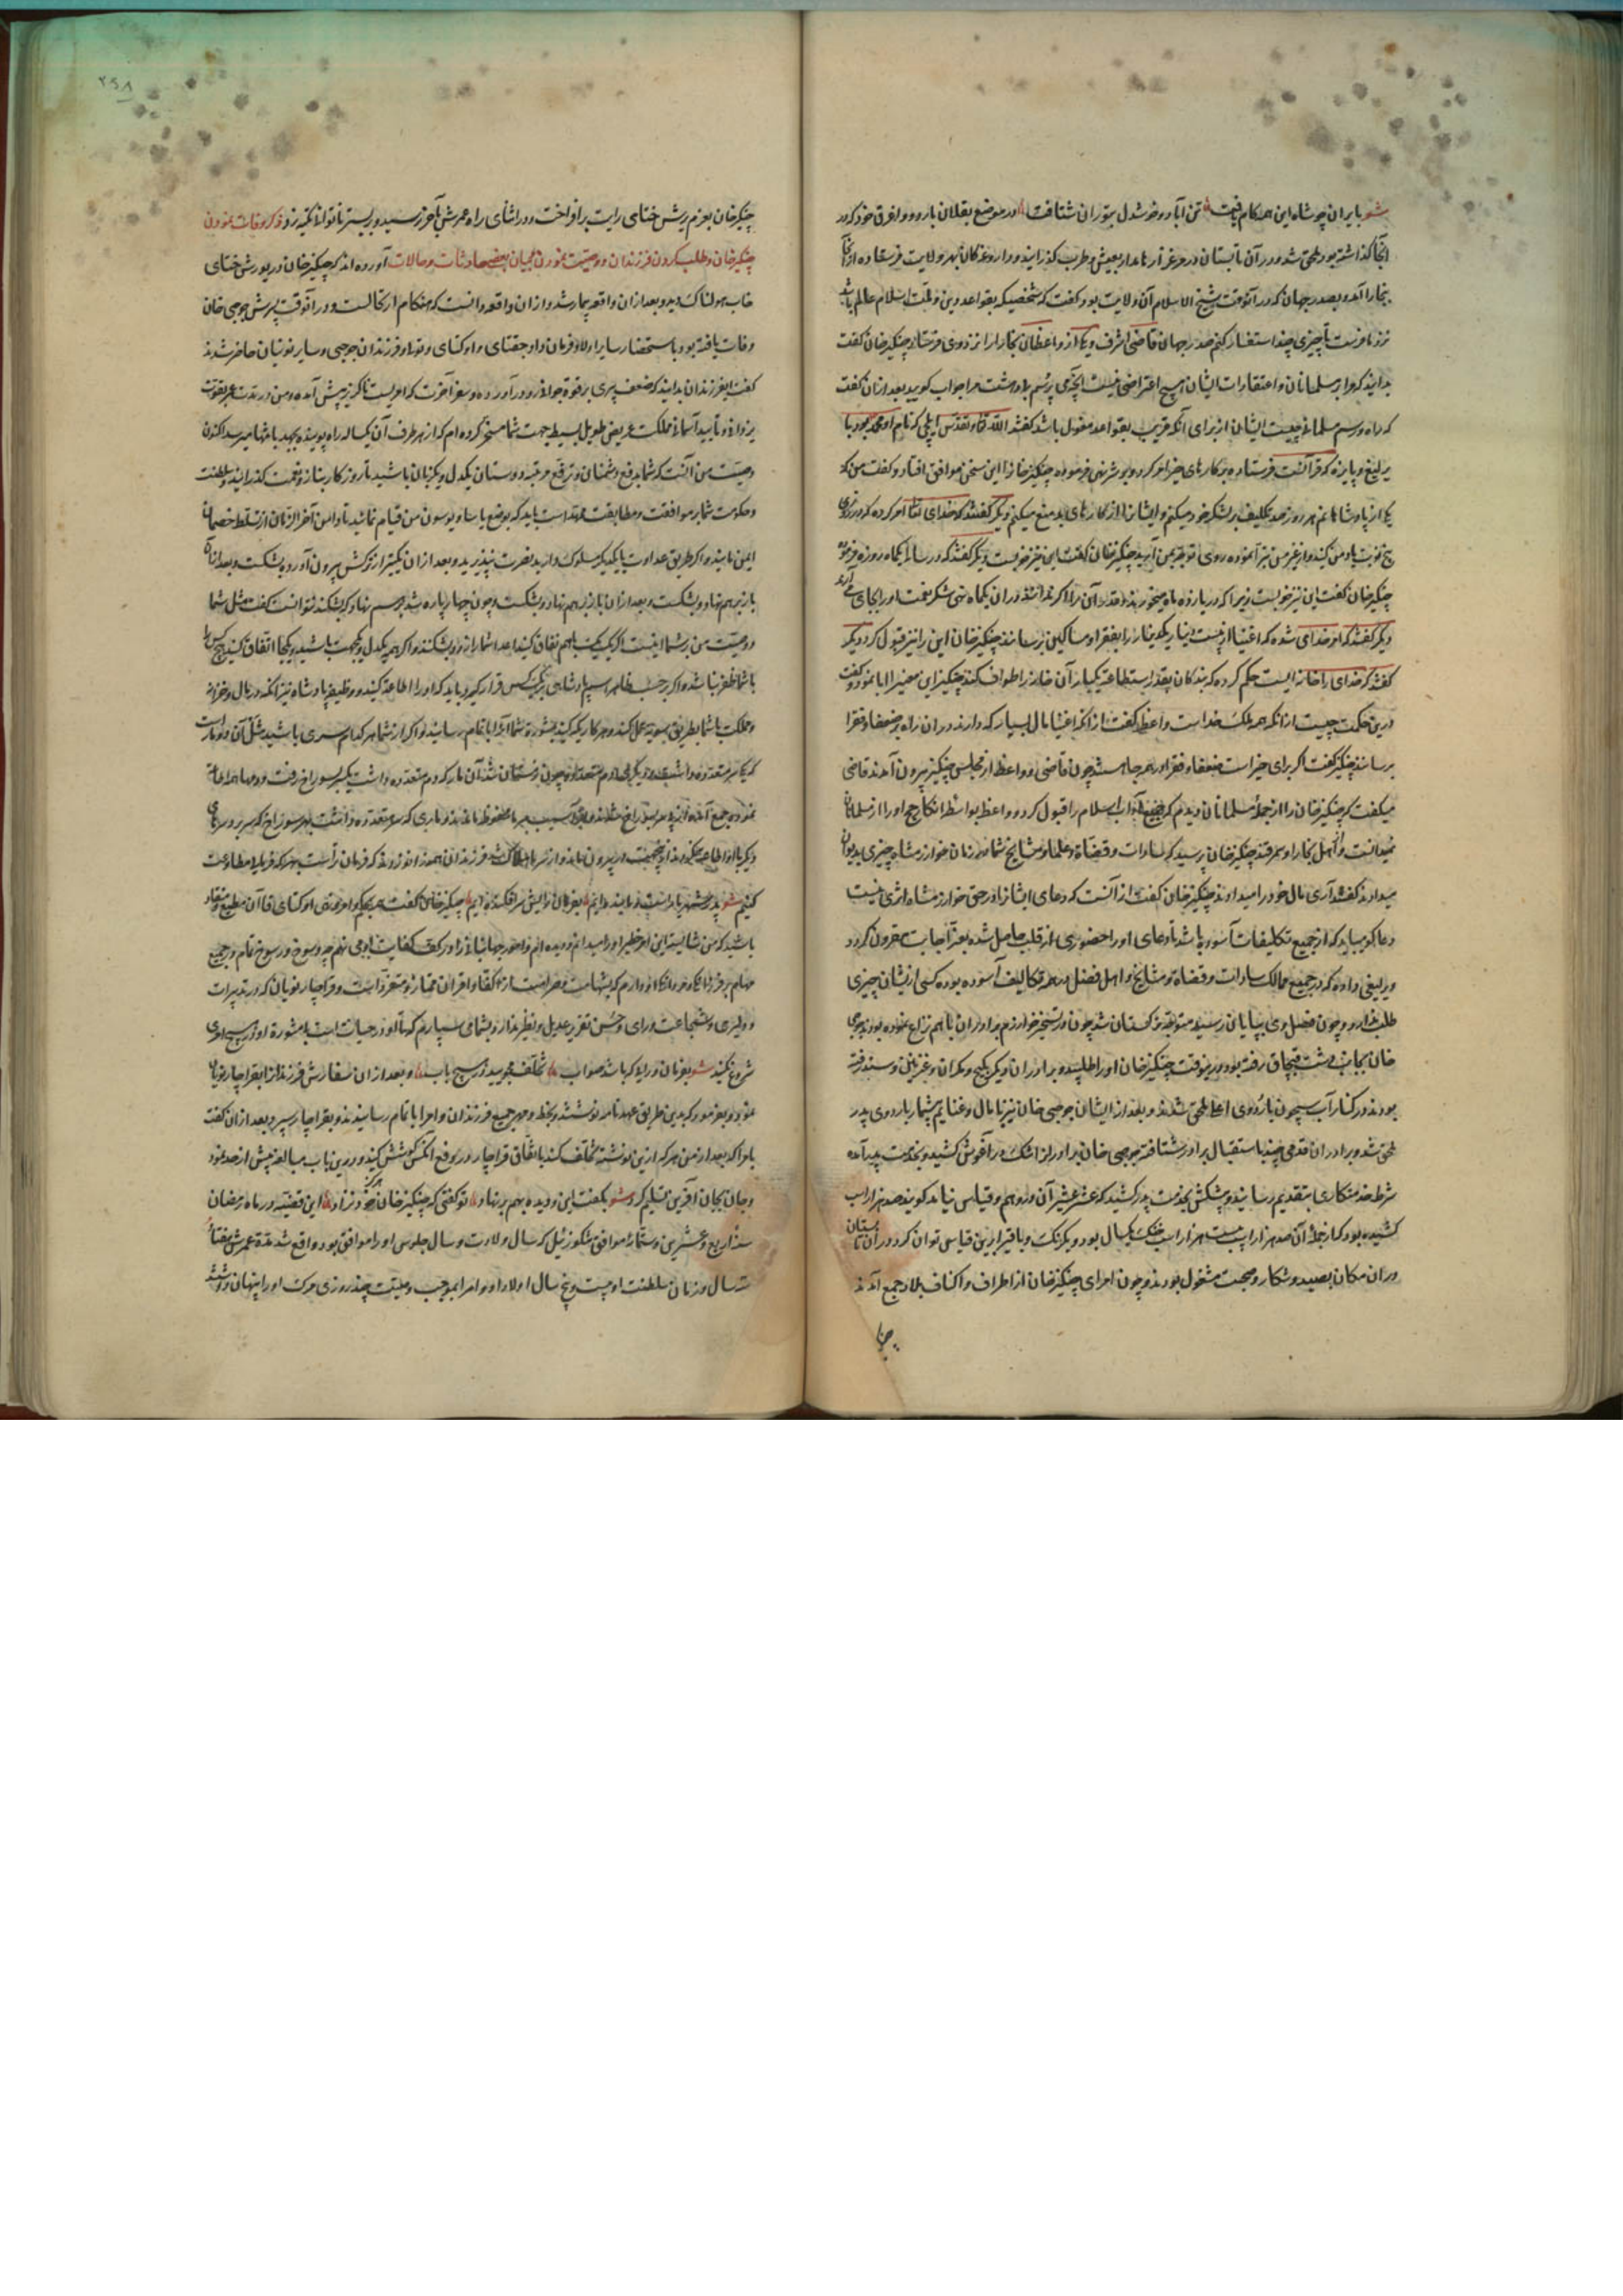 شعر بایران چو شاه این همه کام یافت تن آباد و خوشدل بتوران شتافت در موضع بقلان بارودو اغرق خود که در
آنجا گذاشته بود ملحق شد و در آن تابستان در مرغزار نامدار بعیش و طرب گذرانید و داروغه‌کان بهر ولایت فرستاده از آنجا
بخارا آمد و بصدر جهان که در آنوقت شیخ الاسلام آن ولایت بود گفت که شخصیکه بقواعد دین و ملت اسلام عالم باشد
نزد ما فرست تا چیزی چند استفسار کنیم صدر جهان قاضی اشرف و یکی از واعظان بخارا را نزد وی فرستاد چنگیزخان گفت
بدانید که مرا بر مسلمانان و اعتقادات ایشان هیچ اعتراضی نیست آنچه می پرسم بدرشت مرا جواب گویید بعد از آن گفت
که راه و رسم مسلمانی چیست ایشان از برای آنکه قریب بقواعد معقول باشد گفتند الله تعالی و تقدس ایلچی که نام او محمد بود با
یرلیغ و پایزه که قرآنست فرستاده بکارهای خیر امر کرد و بد و شر نهی فرموده چنگیزخان را این سخن موافق افتاد و گفت من که
یکی از پادشاهانم هر روز صد تکلیف بر لشکر خود میکنم و ایشان را از کارهای بد منع میکنم دیگر گفتند که خدای تعالی امر کرده که در روزی
پنج نوبت یاد من کنید و از غیر من تبرا نموده روی توجه بمن آرید چنگیزخان گفت این نیز خوبست دیگر گفتند که در سالی یکماه روزه فرموده
چنگیزخان گفت این نیز خوبست زیرا که در یازده ماه میخورند و قدر آن را اگر ندانند در آن یکماه نهی شکر نعمت او را بجای می آرند
دیگر گفتند که امر خدای شده که اغنیا از بیست دینار یکدینار را بفقرا و مساکین برسانند چنگیزخان این را نیز قبول کرد دیگر
گفتند که خدای را خانه ایست حکم کرده که بندکان بقدر استطاعت یکبار آن خانه را طواف کنند چنگیز این معنی را ابا نمود و گفت
درین حکمت چیست از آنکه همه ملک خداست واعظ گفت از آنکه اغنیا مال بسیار که دارند در آن راه بضعفا و فقرا
برسانند چنگیز گفت اگر برای خیر است ضعفا و فقرا در همه جا هستند چون قاضی و واعظ از مجلس چنگیز بیرون آمدند قاضی
میگفت که چنگیزخان را از جمله مسلمانان دیدم که جمیع آداب اسلام را قبول کرد و واعظ بواسطه انکار حج او را از مسلمانان
نمیدانست و اهل بخارا و سمرقند چنگیزخان پرسید که سادات و قضاة و علما و مشایخ شما در زمان خوارزمشاه چیزی بدیوان
میدادند گفتند آری مال خود را میدادند چنگیزخان گفت از آنست که دعای ایشان در حق خوارزمشاه اثری نیست
دعاگو میباید که از جمیع تکلیفات آسوده باشد تا دعای او را حضوری از قلب حاصل شده بعز اجابت مقرون گردد
و یرلیغی داده که در جمیع ممالک سادات و قضاة و مشایخ و اهل فضل از همه تکالیف آسوده بوده کسی از ایشان چیزی
طلب ندارد و چون فصل دی بپایان رسید متوجه ترکستان شد چون در تسخیر خوارزم برادران با هم نزاع نموده بودند جوجی
خان بجانب دشت قبچاق رفته بود و درینوقت چنگیزخان او را طلبیده و برادران دیگر بکیج و مکران و غزنین و سند رفته
بودند در کنار آب سیحون باردوی اعلا ملحق شدند و بعد از ایشان جوجی خان نیز با مال و غنایم بیشمار باردوی پدر
ملحق شد و برادران قدمی چند باستقبال برادر شتافته جوجی خان برادران را تنگ در آغوش کشید و بخدمت پدر آمده
شرط خدمتکاری بتقدیم رسانید و پیشکش بخدمت پدر کشید که عشر عشیر آن در وهم و قیاس نیاید گویند صد هزار اسب
کشیده بود که از جمله آن صد هزار اسب بیست هزار اسب خنگ یکسال بود و یکرنگ و باقی را برین قیاس توان کرد در آن تابستان
در آن مکان بصید و شکار و صحبت مشغول بودند و چون امرای چنگیزخان از اطراف و اکناف بلاد جمع آمدند
چنگیزخان بعزم یورش ختای رایت برافراخت و در اثنای راه عمرش بآخر رسید و بر بستر ناتوانی تکیه زد ذکر وفات نمودن
چنگیزخان و طلب کردن فرزندان و وصیت نمودن و بیان بعضی حادثات و حالات آورده اند که چنگیزخان در یورش ختای
خواب هولناک دید و بعد از آن واقعه بیمار شد و از آن واقعه دانست که هنگام ارتحالست و در آنوقت پسرش جوجی خان
وفات یافته بود باستحضار سایر اولاد فرمان داد جغتای و اوکتای و تولی و فرزندان جوجی و سایر نوئینان حاضر شدند
گفت ای فرزندان بدانید که ضعف پیری بر قوة جوانی زور آورده و سفر آخرت که امریست ناگزیر پیش آمده و من در مدت عمر بقوت
یزدانی و تأیید آسمانی مملکت عریض طویل بسیط جهت شما مسخر کرده ام که از هر طرف آن یکساله راه پوینده بجهد بانتها میرسد اکنون
وصیت من آنست که شما بدفع دشمنان و ترفع مرتبه دوستان یکدل و یکزبان باشید تا روزگار بناز و نعمت گذرانید و سلطنت
و حکومت شما بر موافقت و مطابقت ممتد است باید که بوضع یاسا و یوسون من قیام نمائید تا دامن آخر الزمان از تسلط خصمان
ایمن مانید و اگر طریق عداوت با یکدیگر مسلوک دارید بضرورت نپذیرید و بعد از آن یک تیر از ترکش بیرون آورده بشکست و بعد از آن
باز بر هم نهاد و بشکست و بعد از آن باز بر هم نهاد و بشکست و چون چهار پاره شد بر هم نهاد که بشکند نتوانست گفت مثل شما
و وصیت من بر شما اینست اگر یک یک با هم نفاق کنید اعدا شما را زود بشکنند و اگر همه یکدل و یکجهت باشید و یکجا اتفاق کنید هیچکس را
با شما ظفر نباشد و اگر بحسب ظاهر اسم پادشاهی بر یک کس قرار گیرد باید که او را اطاعت کنید و وظیفه پادشاه نیز آنکه در مال و خزانه
و مملکت با شما بطریق سویت عمل کند و هر کاری که کنید بمشورة شما آنرا باتمام رسانید و اگر از شما هر کدام سری باشید مثل آن دو مار است
که یکی سر متعدده داشت و دیگری دم متعدد چون زمستان شد آن مار که دم متعدده داشت یک سر بسوراخ رفت و دمها همراه
نموده جمع آمده از سرما محفوظ ماندند و ماری که سر متعدده داشت هر سوراخ که سر در سرهای
دیگر با او اطاعت نکردند از آنجهت در بیرون ماند و از سرما هلاک شد فرزندان همه زانو زدند که فرمان راست هر که فرمائید مطاوعت
کنیم شعر پدر شهریار است و ما بنده ایم بفرمان و رایش سر افکنده ایم چنگیزخان گفت میگویم بعد از من اوکتای قاآن مطیع و منقاد
باشید که من شایسته این امر خطیر او را میدانم و دیده ام زمام امور جهانبانی را در کف کفایت او می نهم چه وسوخ و رسوخ تمام در جمیع
مهام بر فرزانگی و مردانگی او دارم که بشهامت و صرامت از اکفا و اقران ممتاز و متفرد است و قراچار نویان که در تدبیرات
و دلیری و شجاعت و رای و حسن تقریر عدیل و نظیر ندارد بشما می سپارم که تا او در حیات است بی مشورة او در هیچ امری
شروع نکنید شعر بفرمان و رایی که باشد صواب تخلف مجویید از هیچ باب و بعد از آن سفارش فرزندان را بقراچار نویان
نمود و بفرمود که بدین طریق عهدنامه نوشتند و بخط و مهر جمیع فرزندان و امرا باتمام رسانیدند و بقراچار سپرد بعد از آن گفت
بامرا که بعد از من هر که ازین نوشته تخلف کند باتفاق قراچار در دفع آنکس کوشش کنید و درین باب مبالغه بیش از حد نمود
و جان بجان آفرین تسلیم کرد شعر بگفت این و دیده بهم بر نهاد تو گفتی که چنگیزخان خود نزاد این قضیه در ماه رمضان
سنه اربع و عشرین و ستمائه موافق تنگوز ئیل که سال ولادت و سال جلوس او را موافق بود واقع شد مدة عمرش هفتاد
و سه سال و زمان سلطنت او بیست و پنج سال اولاد او و امرا بموجب وصیت چند روزی مرگ او را پنهان داشتند